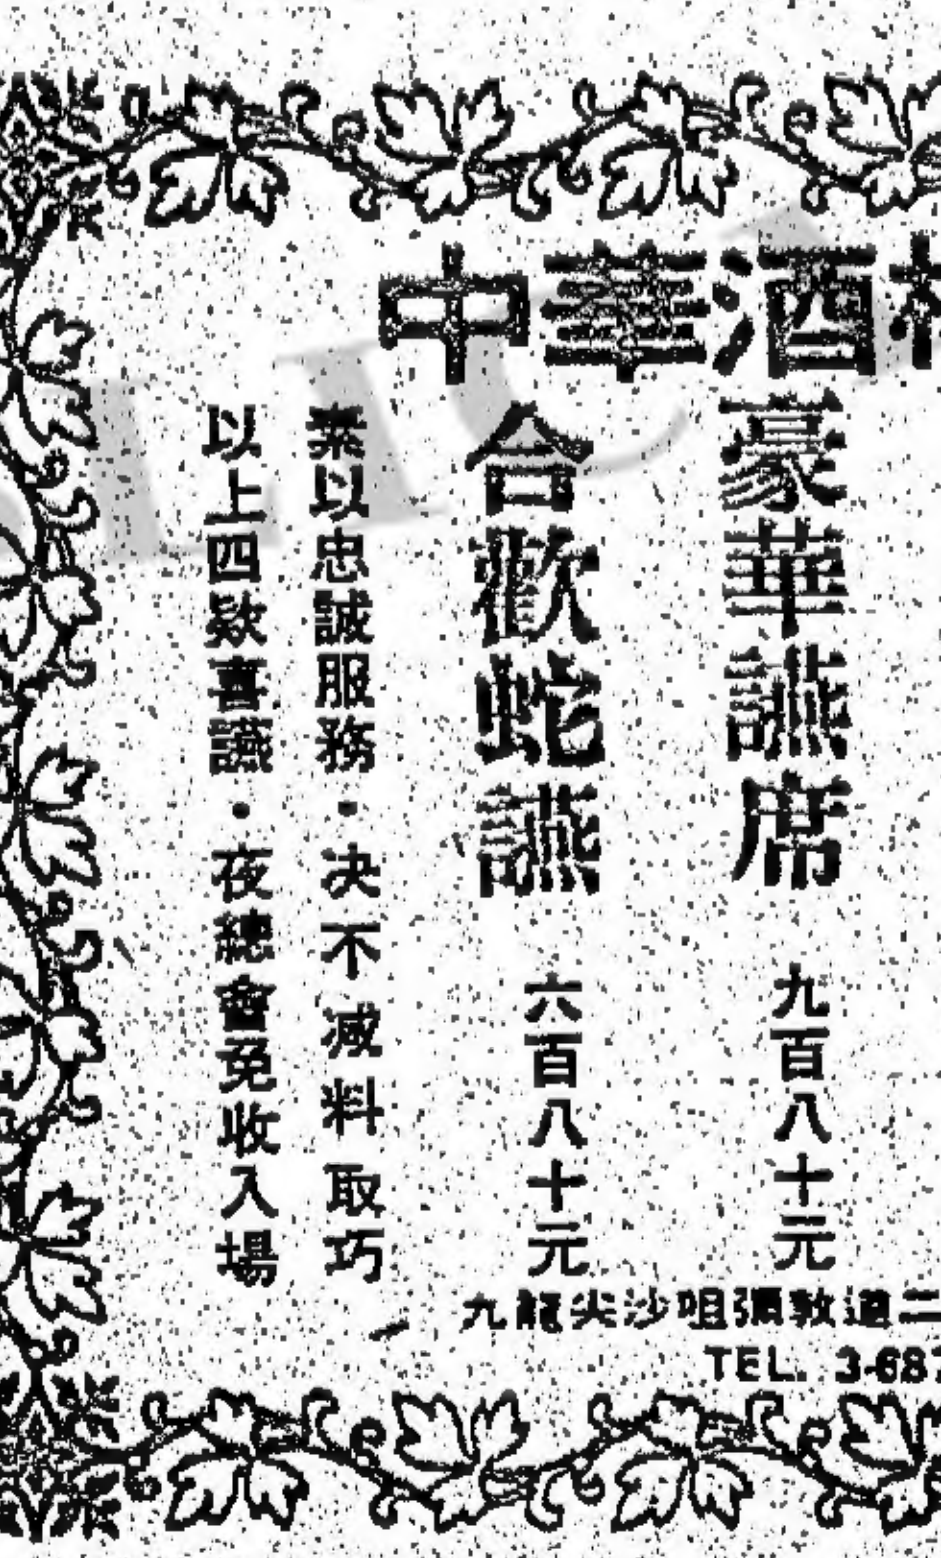 中華酒
豪華讌席 九百八十元
合歡蛇讌 六百八十元
素以忠誠服務・决不减料取巧
以上四欵喜讌・夜總會免收入場
九龍尖沙咀彌敦道二
TEL. 3-687